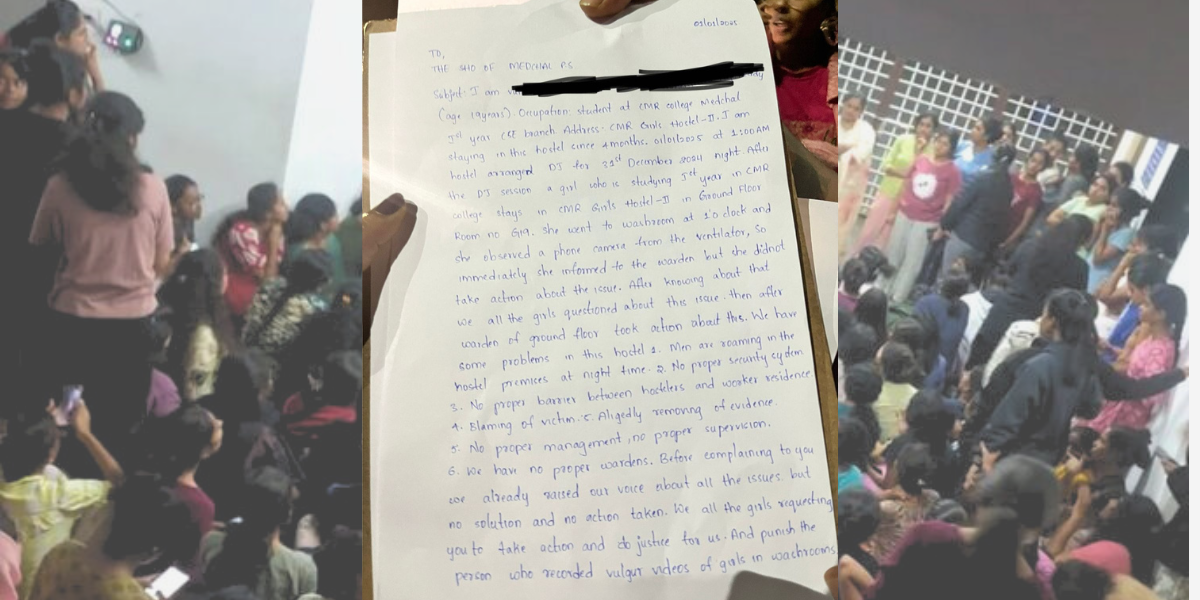 03/01/2025
TO,
THE SHO OF MEDCHAL P.S
Subject: I am
(age 19years). Occupation: student at CMR college Medchal
Ist year CSE branch Address: CMR Girls Hostel-II. I am
staying in this hostel since 4 months. 01/01/2025 at 1:00AM
hostel arranged DJ for 31st December 2024 night. After
the DJ session a girl who is studying Ist year in CMR
college stays in CMR Girls Hostel-II in Ground Floor
Room no G19. She went to washroom at 1'o clock and
she observed a phone camera from the ventilator, so
immediately she informed to the warden but she didnot
take action about the issue. After knowing about that
we all the girls questioned about this issue. then after
warden of ground floor took action about this. We have
some problems in this hostel 1. Men are roaming in the
hostel premises at night time. 2. No proper security system
3. No proper barrier between hostelers and worker residence
4. Blaming of victim. 5. Aligedly removing of evidence.
5. No proper management, no proper supervision.
6. We have no proper wardens. Before complaining to you
we already raised our voice about all the issues. but
no solution and no action taken. We all the girls requesting
you to take action and do justice for us. And punish the
person who recorded vulgur videos of girls in washrooms